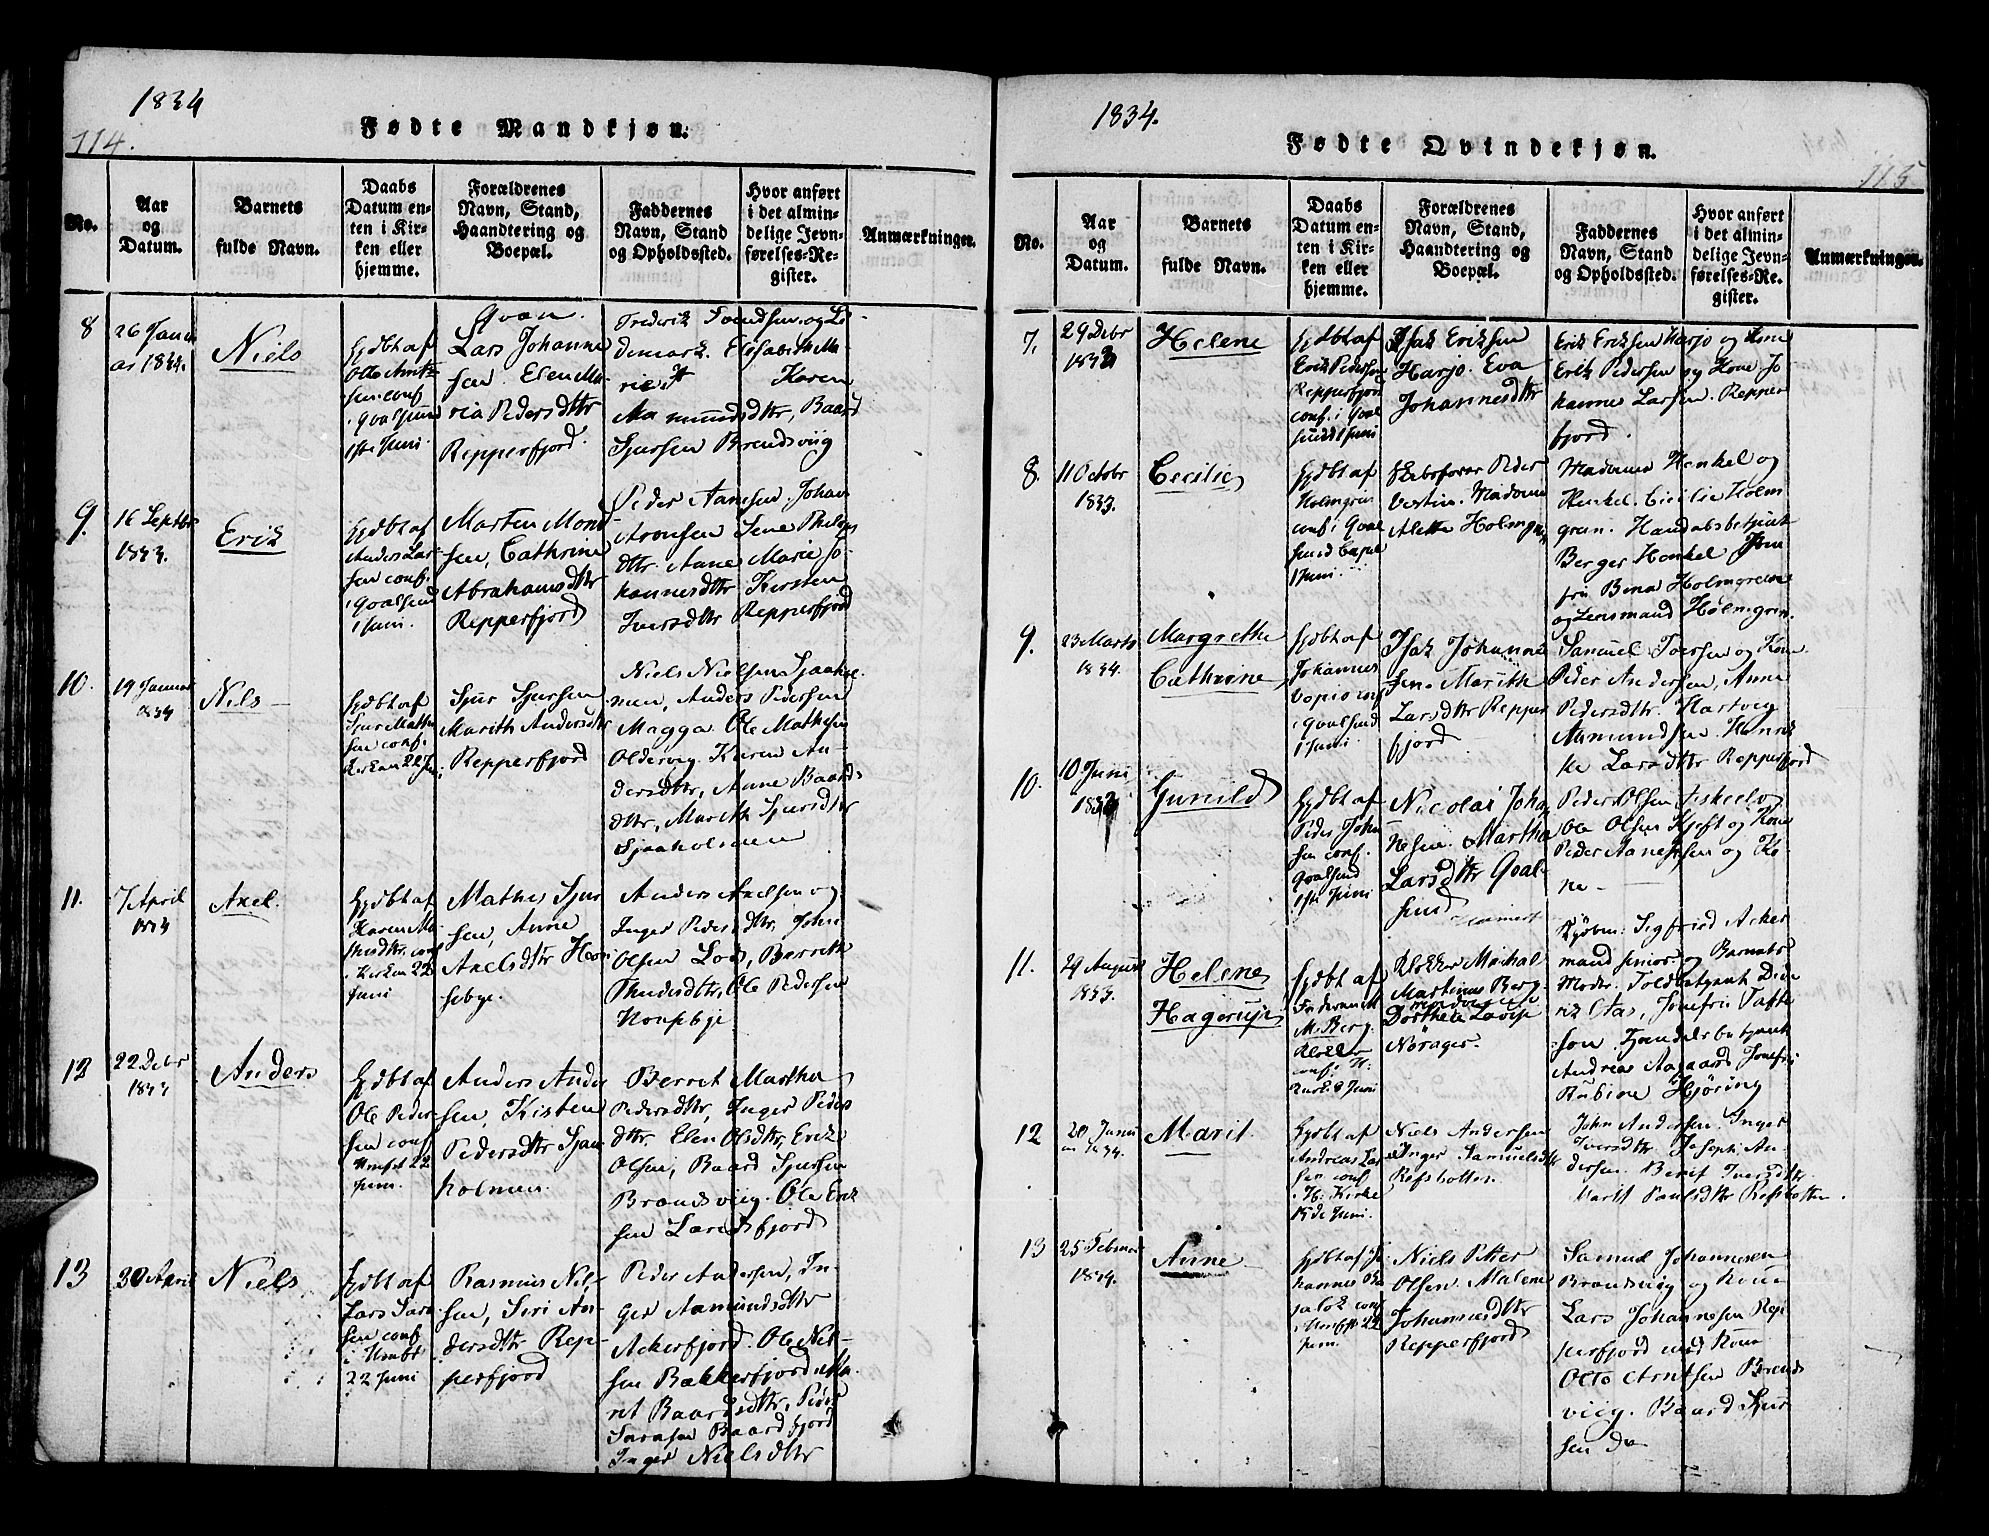 1834
114.
Fødte Mandkjøn.
No.
Aar
og
Datum.
Barnets
fulde Navn.
Daabs
Datum en-
ten i Kir-
ken eller
hjemme.
Forældrenes
Navn, Stand,
Haandtering og
Boepæl.
Faddernes
Navn, Stand
og Opholdssted.
Hvor anført
i det almin-
delige Jevn-
førelses-Re-
gister.
Anmærkninger.
8
26 Janu
ar 1834.
Niels
hjdbt af
Otto Arnt-
sen conf
i Qvalsund
1ste Juni.
Qvæn.
Lars Johanne
sen. Elen Ma-
ria Pedersdttr
Repperfjord.
Frederik
demark. Elisabeth Ma-
rie Karen
Aamundsdttr, Baard
Sjursen Brendsviig
9.
16 Septbr
1833.
Erik
hjdbt af
Anders Lar-
sen conf.
i Qvalsund
1 Juni.
Morten Mons
sen, Cathrine
Abrahamsdttr
Repperfjord
Peder Aamsen. Johan
Aronsen Lene Philips
dttr. Anne Marie Jo-
hannesdttr Kirsten
Iversdttr Repperfjord
10.
19 Januar
1834
Nils
hjdbt af
Sjur Mathi
sen conf.
Kirken 22 Jun
Sjur Sjursen
Marith Andersdttr
Repperfjord
Niels Nielsen Sjaahol
men, Anders Pedersen
Magga. Ole Mathisen
Oldervig. Karen An-
dersdttr, Anne Baards
dttr, Marith Sjursdttr
Sjaaholmen
11.
7 April
1834
Axel.
hjdbt af
Karen Ma-
thisdttr conf
i Kirken 22
Juni
Mathis Sjur
sen, Anne
Axelsdttr Han
sebye.
Anders Axelsen og
Inger Pedersdttr, John
Olsen Lod, Berreth
Thudesdttr, Ole Pedersen
12
22 Debr
1833
Anders
hjdbt af
Ole Peder-
sen conf
22
Juni.
Anders Ander
sen, Kisten
Pedersdttr Sjaa
holmen.
Berret Martha
Pedersdttr, Inger Peders
dttr. Elen Olsdttr, Erik
Olsen, Baard Sjursen
Brandsviig. Ole Erik
sen Laredsfjord
13
30 April
Niels
hjdbt af
Lars Lars
sen conf
22 Juni
Rasmus Nil-
sen, Siri An-
dersdttr Rep-
perfjord
Peder Andersen, In-
ger Aamundsdttr
Ackerfjord. Ole Niel-
sen Bakkerfjord, Ma-
ret Baardsdttr, Peder
Baardfjord
Inger Nielsdttr
1834.
115
Fødte Qvindekjøn.
No.
Aar
og
Datum.
Barnets
fulde Navn.
Daabs
Datum en-
ten i Kir-
ken eller
hjemme.
Forældrenes
Navn, Stand,
Haandtering og
Boepæl.
Faddernes
Navn, Stand
og Opholdssted.
Hvor anført
i det almin-
delige Jevn-
førelses-Re-
gister.
Anmærkninger.
7.
29 Debr
1833
Helene
hjdbt af
Erik Pedersen
Repperfjord
conf. i Qval
sund 1 Juni
Isak Eriksen
Harjo. Eva
Johannesdttr
Erik Eriksen Harjo og Kone
Erik Pedersen og Kone Jo
hannes Larsen. Repper
fjord.
8.
11 Octobr
1833.
Cecilie
hjdbt af
Holmgren
conf i Qval
sund Capel
1 Juni.
Peder
Vestin. Madame
Aletta Holmgren
Madame Henkel og
Henkel. Cicilie Holm
gren. Handelsbetjent
Berger Henkel Jom
fru Bina Holmgren
og Lensmand Holmgren.
9.
23 Marts
1834.
Margrethe
Cathrine
hjdbt af
Johannes
Vapio conf
i Qvalsund
1 Juni
Isak Johanne
sen. Marith
Larsdttr Repper
fjord
Samuel Torsen og Kone
Peder Andersen, Anne
Pedersdttr. Hartvig
Aamundsen. Henrik
ke Larsdttr Repperfjord
10.
10 Juni
1833
Gunild
hjdbt af
Peder John
sen conf.
Qvalsund
1ste Juni
Nicolai Johan
nesen. Martha
Larsdttr Qval-
sund
Peder Olsen og
Ole Olsen Kjeft og Kone
Peder Aanesen og Ko-
ne
11.
24 August
1833.
Helene
Hagerup
hjdbt af
M. Berg
conf. H.
Kirk. 8 Juni
Klokker Michal
Martinus Berg.
Madame
Dorthea Lovise
Norager.
Kjøbm. Sigfried Acker
mand senior og Barnets
Moder. Toldbetjent Died
rik Clas, Jomfru Taft
son. Handelsbetjent
Andreas Aagaard Jomfru
Rubine Hjøring
12
20 Janu
ar 1834.
Marit.
hjdbt af
Andreas Lar
sen conf
i H. Kirke
15de Juni.
Niels Andersen
Inger Samuelsdtr
Refsbotten
John Andersen. Inger
Iversdttr Joseph An-
dersen. Berit Iversdttr
Marit Paulsdttr Refsbotten.
13
25 Februar
1834.
Anne
hjdbt af Jo
hannes
conf
22
Juni.
Niels Peter
Olsen. Malene
Johannesdttr
Repperfjord
Samuel Johannesen
Brandsviig og Kone
Lars Johannesen Rep
perfjord med Kone
Otto Arntsen Brends
viig. Baard Sjur
sen do